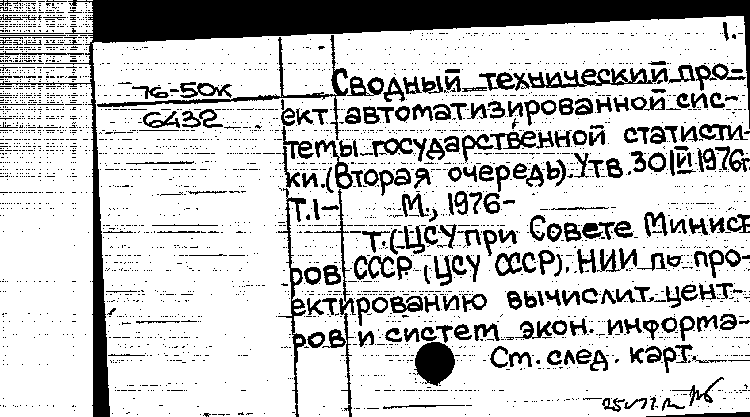 1.
76-50к
6432
Сводный технический про=
ект автоматизированной сис-
темы государственной статисти-
ки. (Вторая очередь). Утв. 30 III 1976г
Т.1- М., 1976-
т. (ЦСУ при Совете Минист
ров СССР (ЦСУ СССР). НИИ по про-
ектированию вычислит. цент-
ров и систем экон. информа-
См. след. карт.